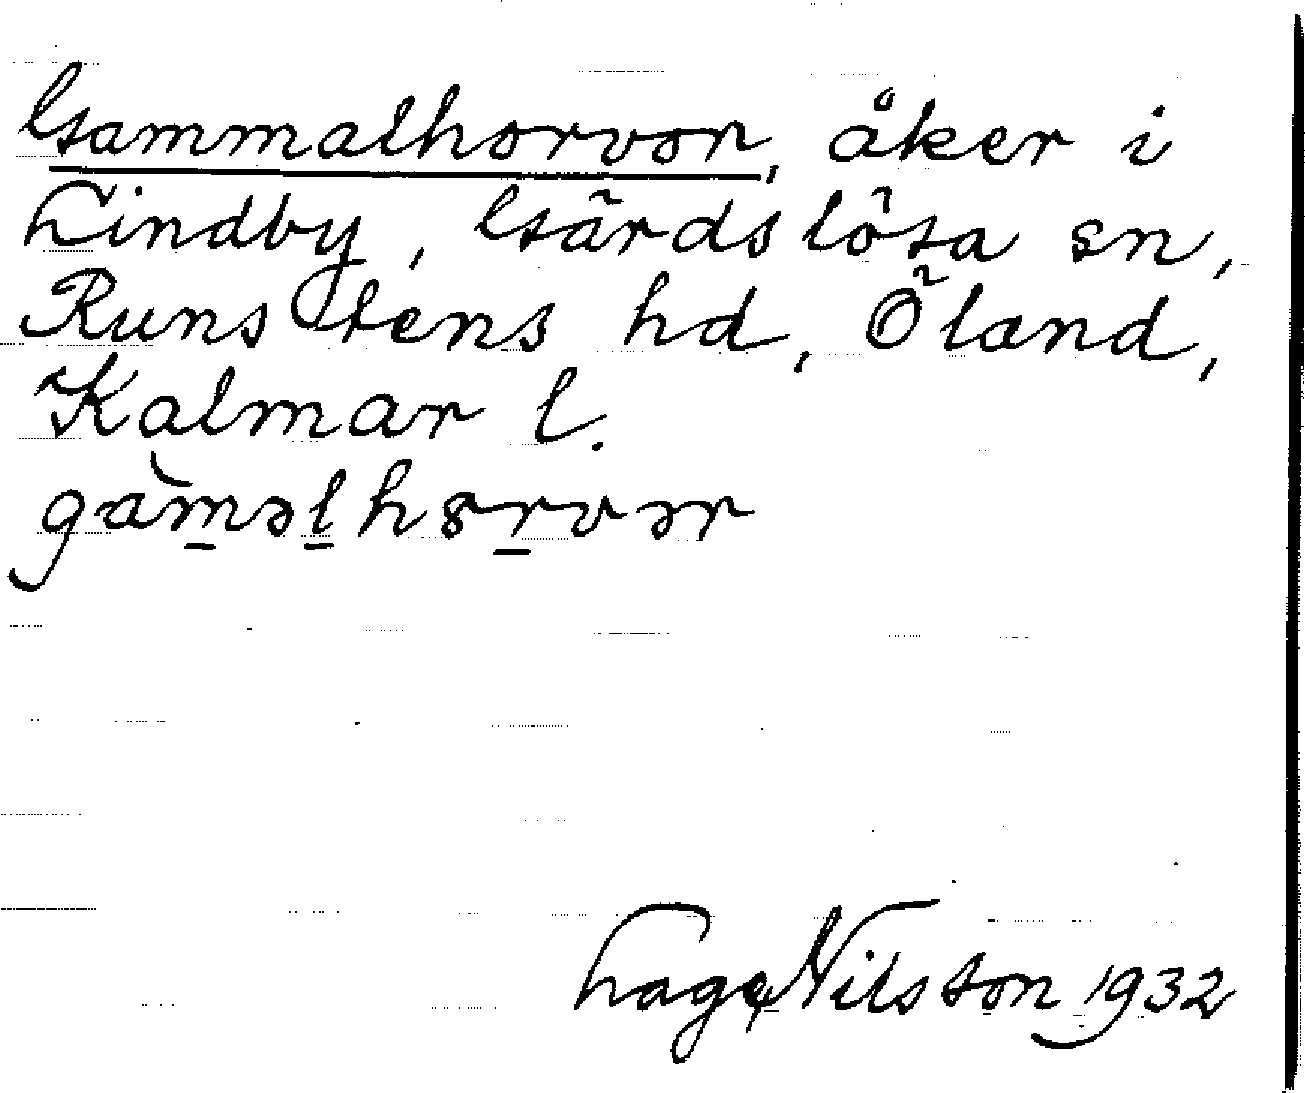 Gammalhorvor, åker i
Lindby, Gärdslösa sn,
Runstens hd, Öland,
Kalmar l.
gàm̲əl̲hɞr̲vər
Hage Nilsson 1932